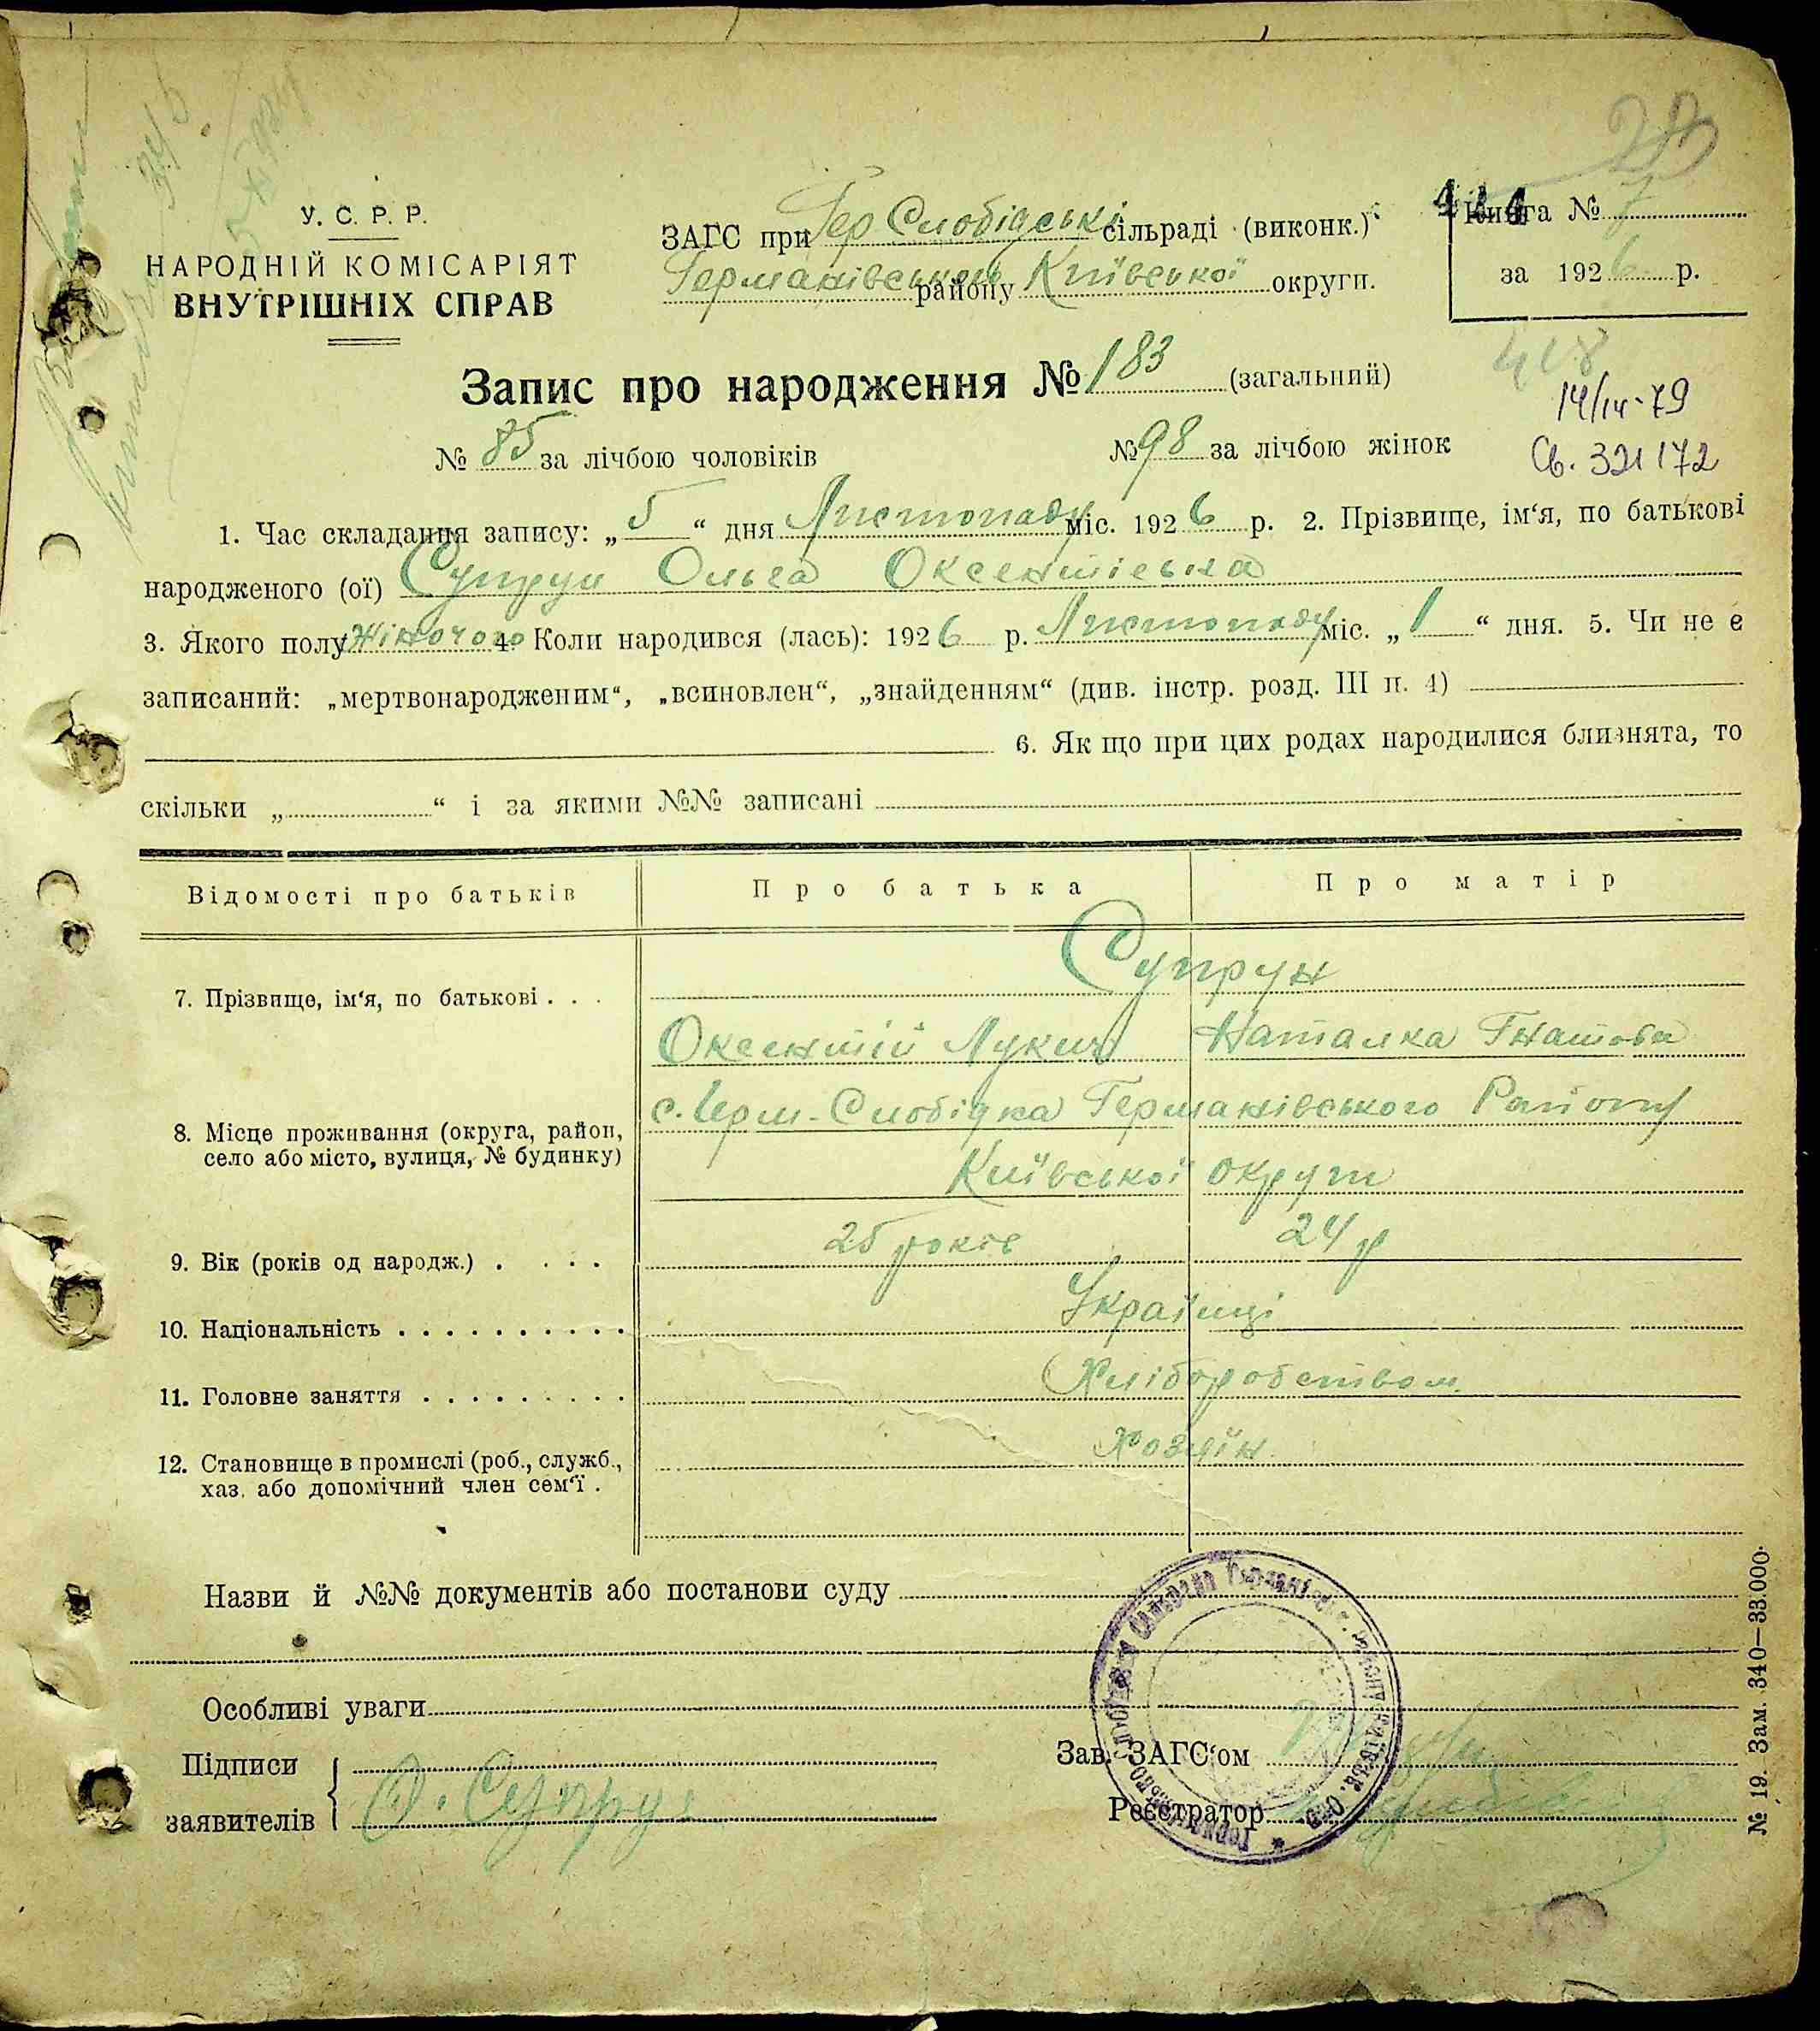 28
У. С. Р. Р.
НАРОДНІЙ КОМІСАРІЯТ
ВНУТРІШНІХ СПРАВ
ЗАГС при Гер Слобідські сільраді (виконк.)
Германівського району Київської округи.
Книга № 7
за 1926 р.
Запис про народження № 183 (загальний)
418
14/IV-79
Св. 321172
№ 85 за лічбою чоловіків № 98 за лічбою жінок
1. Час складання запису: „ 5 “ дня Листопаду міс. 1926 р. 2. Прізвище, ім‘я, по батькові
народженого (ої) Супрун Ольга Оксентіевна
3. Якого полу Жіночого 4. Коли народився (лась): 1926 р. Листопаду міс. „ 1 “ дня. 5. Чи не є
записаний: „мертвонародженим“, „всиновлен“, „знайденням“ (див. інстр. розд. III п. 4)
6. Як що при цих родах народилися близнята, то
скільки „ “ і за якими №№ записані
Відомості про батьків Про батька Про матір
Супрун
7. Прізвище, ім‘я, по батькові . . .
Оксентій Лукич Наталка Гнатова
с. Герм-Слобідка Германівського Району
8. Місце проживання (округа, район,
село або місто, вулиця, № будинку)
Київської округи
9. Вік (років од народж.) . . . . 25 років 24 р
10. Національність . . . . . . . . . . Українці
11. Головне заняття . . . . . . . . . Хліборобством
12. Становище в промислі (роб., служб., Хозяїн
хаз. або допомічний член сем‘ї .
Назви й №№ документів або постанови суду
Особливі уваги
Підписи
заявителів О. Супрун
Зав. ЗАГС‘ом
Реєстратор
№ 19. Зам. 340—33.000.